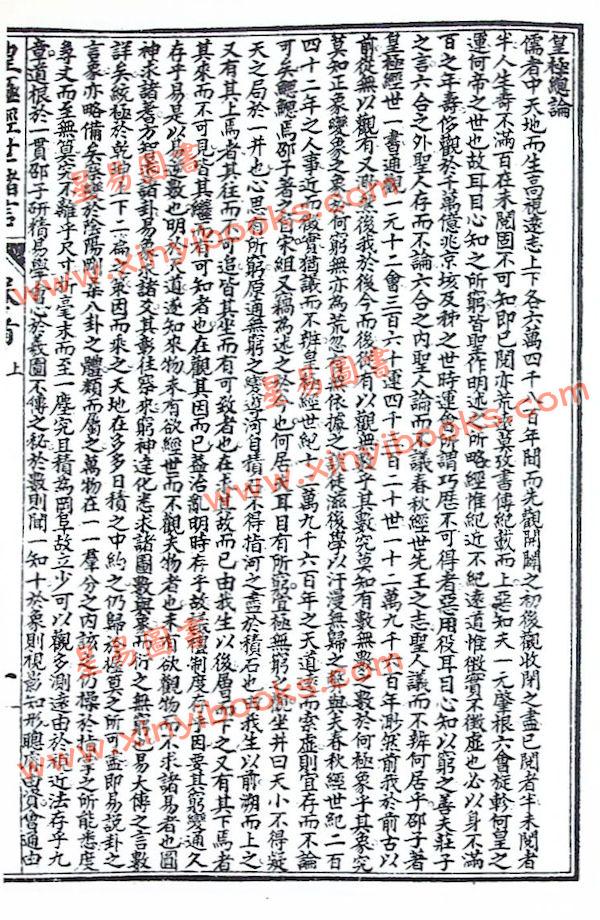 皇極總論
儒者中天地而生高視遠志上下各六萬四千八百年間而先觀開闢之初後觀收閉之盡已閱者半未閱者
半人生壽不滿百在未閱固不可知即已閱亦荒邈莫攷書傳紀載而上惡知夫一元肇根六會旋軫何皇之
運何帝之世也故耳目心知之所窮皆聖作明述之所略經惟紀近不紀遠道惟徵實不徵虛也必以身不滿
百之年壽侈觀於千萬億兆京垓及秭之世時運會所謂巧歷不可得者惡用役耳目心知以窮之善夫莊子
之言六合之外聖人存而不論六合之內聖人論而不議春秋經世先王之志聖人議而不辨何居乎邵子著
皇極經世一書通觀一元十二會三百六十運四千三百二十世一十二萬九千六百年渺然前我於前古以
前從無以觀有又渺然後我於後今而後從有以觀無數乎其數究莫知有數無數之數於何極象乎其象究
莫知正象變象之象於何窮無亦為荒忽無依據之談徒滋後學以汗漫無歸之歎與夫春秋經世紀二百
四十二年之人事近而徵實猶議而不辨皇極經世紀十二萬九千六百年之天道遠而索虛則宜存而不論
可矣鰓鰓焉邵子著之自宋祖又竊為述之於今也何居夫耳目有所窮宜極無窮之觀坐井曰天小不得疑
天之局於一井也心思有所窮原適無窮之變導河自積石不得指河之盡於積石也由我生以前溯而上之
又有其上焉者其往而不可追皆其坐而有可致者也在求其故而已由我生以後層而下之又有其下焉者
其來而不可見皆其繼而有可知者也在觀其因而已蓋治亂明時存乎故議禮制度存乎因要其窮變通久
存乎易是以易逆數也明於天道遂知來物未有欲經世而不觀天物者也未有欲觀物而不求諸易者也圓
神求諸蓍方知求諸卦易象求諸爻其彰往察來窮神達化悉求諸圖數與象而衍之無窮也易大傳之言數
詳矣統極於乾坤上下二篇之策因而乘之天地在多多日積之中約之仍歸於極莫之所可盡即易說卦之
言象亦略備矣錯變於陰陽剛柔八卦之體類而屬之萬物在一一羣分之內該之仍操於指掌之所能悉度
尋丈而至無算究不離乎尺寸析毫末而至一塵究且積為岡阜故立少可以觀多測遠由於視近法存乎九
章道根於一貫邵子研精易學會心於義圖不傳之秘於數則聞一知十於象則視影知形聰明睿質會通由
皇極經世緒言
卷首
上
一
星易圖書
www.xinyibooks.com
星易圖書
www.xinyibooks.com
星易圖書
www.xinyibooks.com